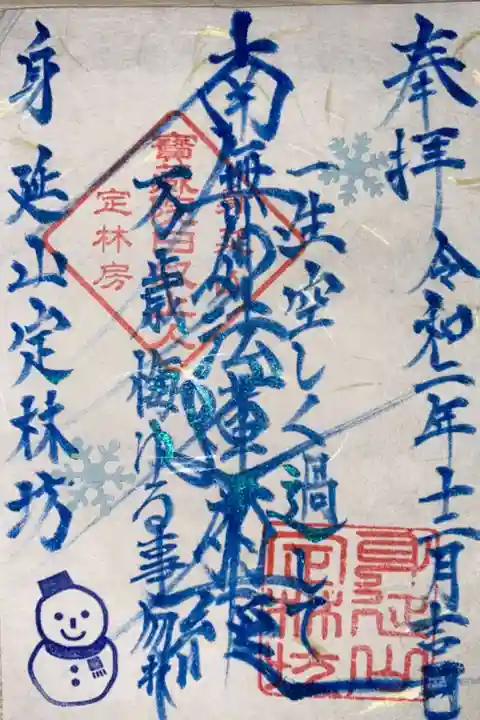 奉拝 令和二年十二月吉日
一生空しく過して
南無妙法蓮華経
万歳悔ゆる事勿れ
身延山定林坊
定林房
身延山定林坊